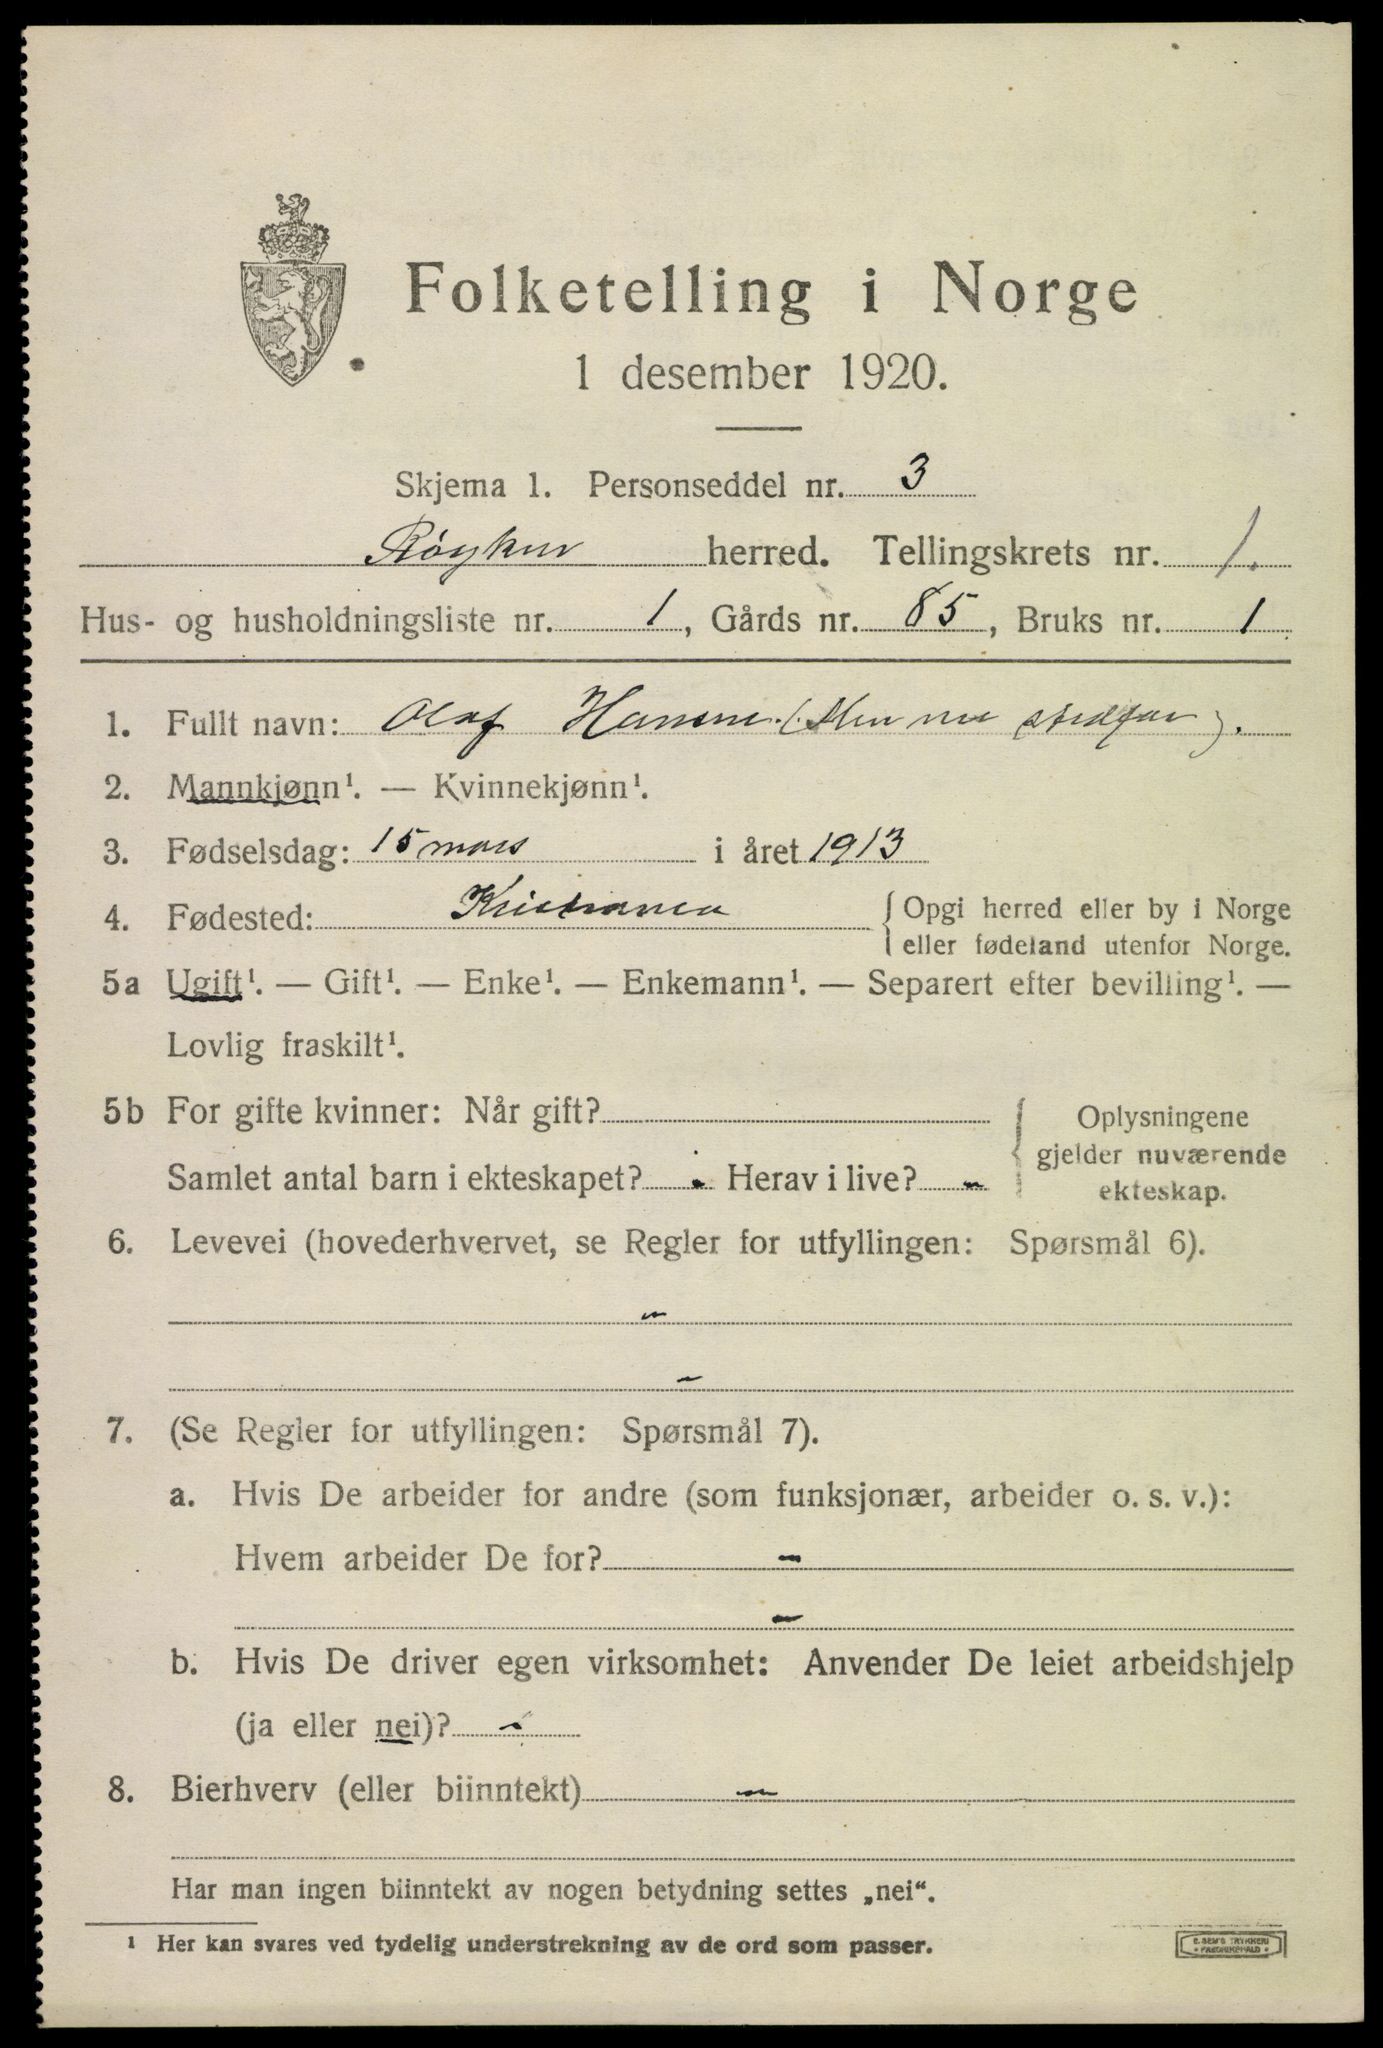 Folketelling i Norge
1 desember 1920.
Skjema 1. Personseddel nr. 3
Røyken herred. Tellingskrets nr. 1.
Hus- og husholdningsliste nr. 1, Gårds nr. 85, Bruks nr. 1
1. Fullt navn: Olaf Hansen.
2. Mannkjønn¹. — Kvinnekjønn¹.
3. Fødselsdag: 15 mars i året 1913
4. Fødested: Kristiania { Opgi herred eller by i Norge
eller fødeland utenfor Norge.
5a Ugift¹. — Gift¹. — Enke¹. — Enkemann¹. — Separert efter bevilling¹. —
Lovlig fraskilt¹.
5b For gifte kvinner: Når gift?
Samlet antal barn i ekteskapet? - Herav i live? -
{ Oplysningene
gjelder nuværende
ekteskap.
6. Levevei (hovederhvervet, se Regler for utfyllingen: Spørsmål 6).
-
-
7. (Se Regler for utfyllingen: Spørsmål 7).
a. Hvis De arbeider for andre (som funksjonær, arbeider o. s. v.):
Hvem arbeider De for? -
-
b. Hvis De driver egen virksomhet: Anvender De leiet arbeidshjelp
(ja eller nei)? -
8. Bierhverv (eller biinntekt) -
Har man ingen biinntekt av nogen betydning settes „nei“.
¹ Her kan svares ved tydelig understrekning av de ord som passer.
E. SEM'S TRYKKERI
• FREDRIKSHALD •